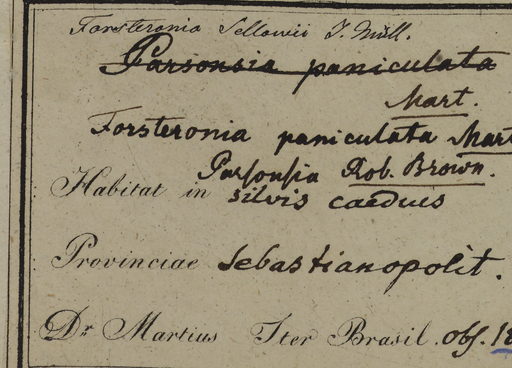 Forsteronia Sellowii J. Müll.
Parsonsia paniculata
Mart.
Forsteronia paniculata Mart
Parsonsia Rob. Brown.
Habitat in silvis caeduis
Provinciae Sebastianopolit.
Dr Martius Iter Brasil. obs.